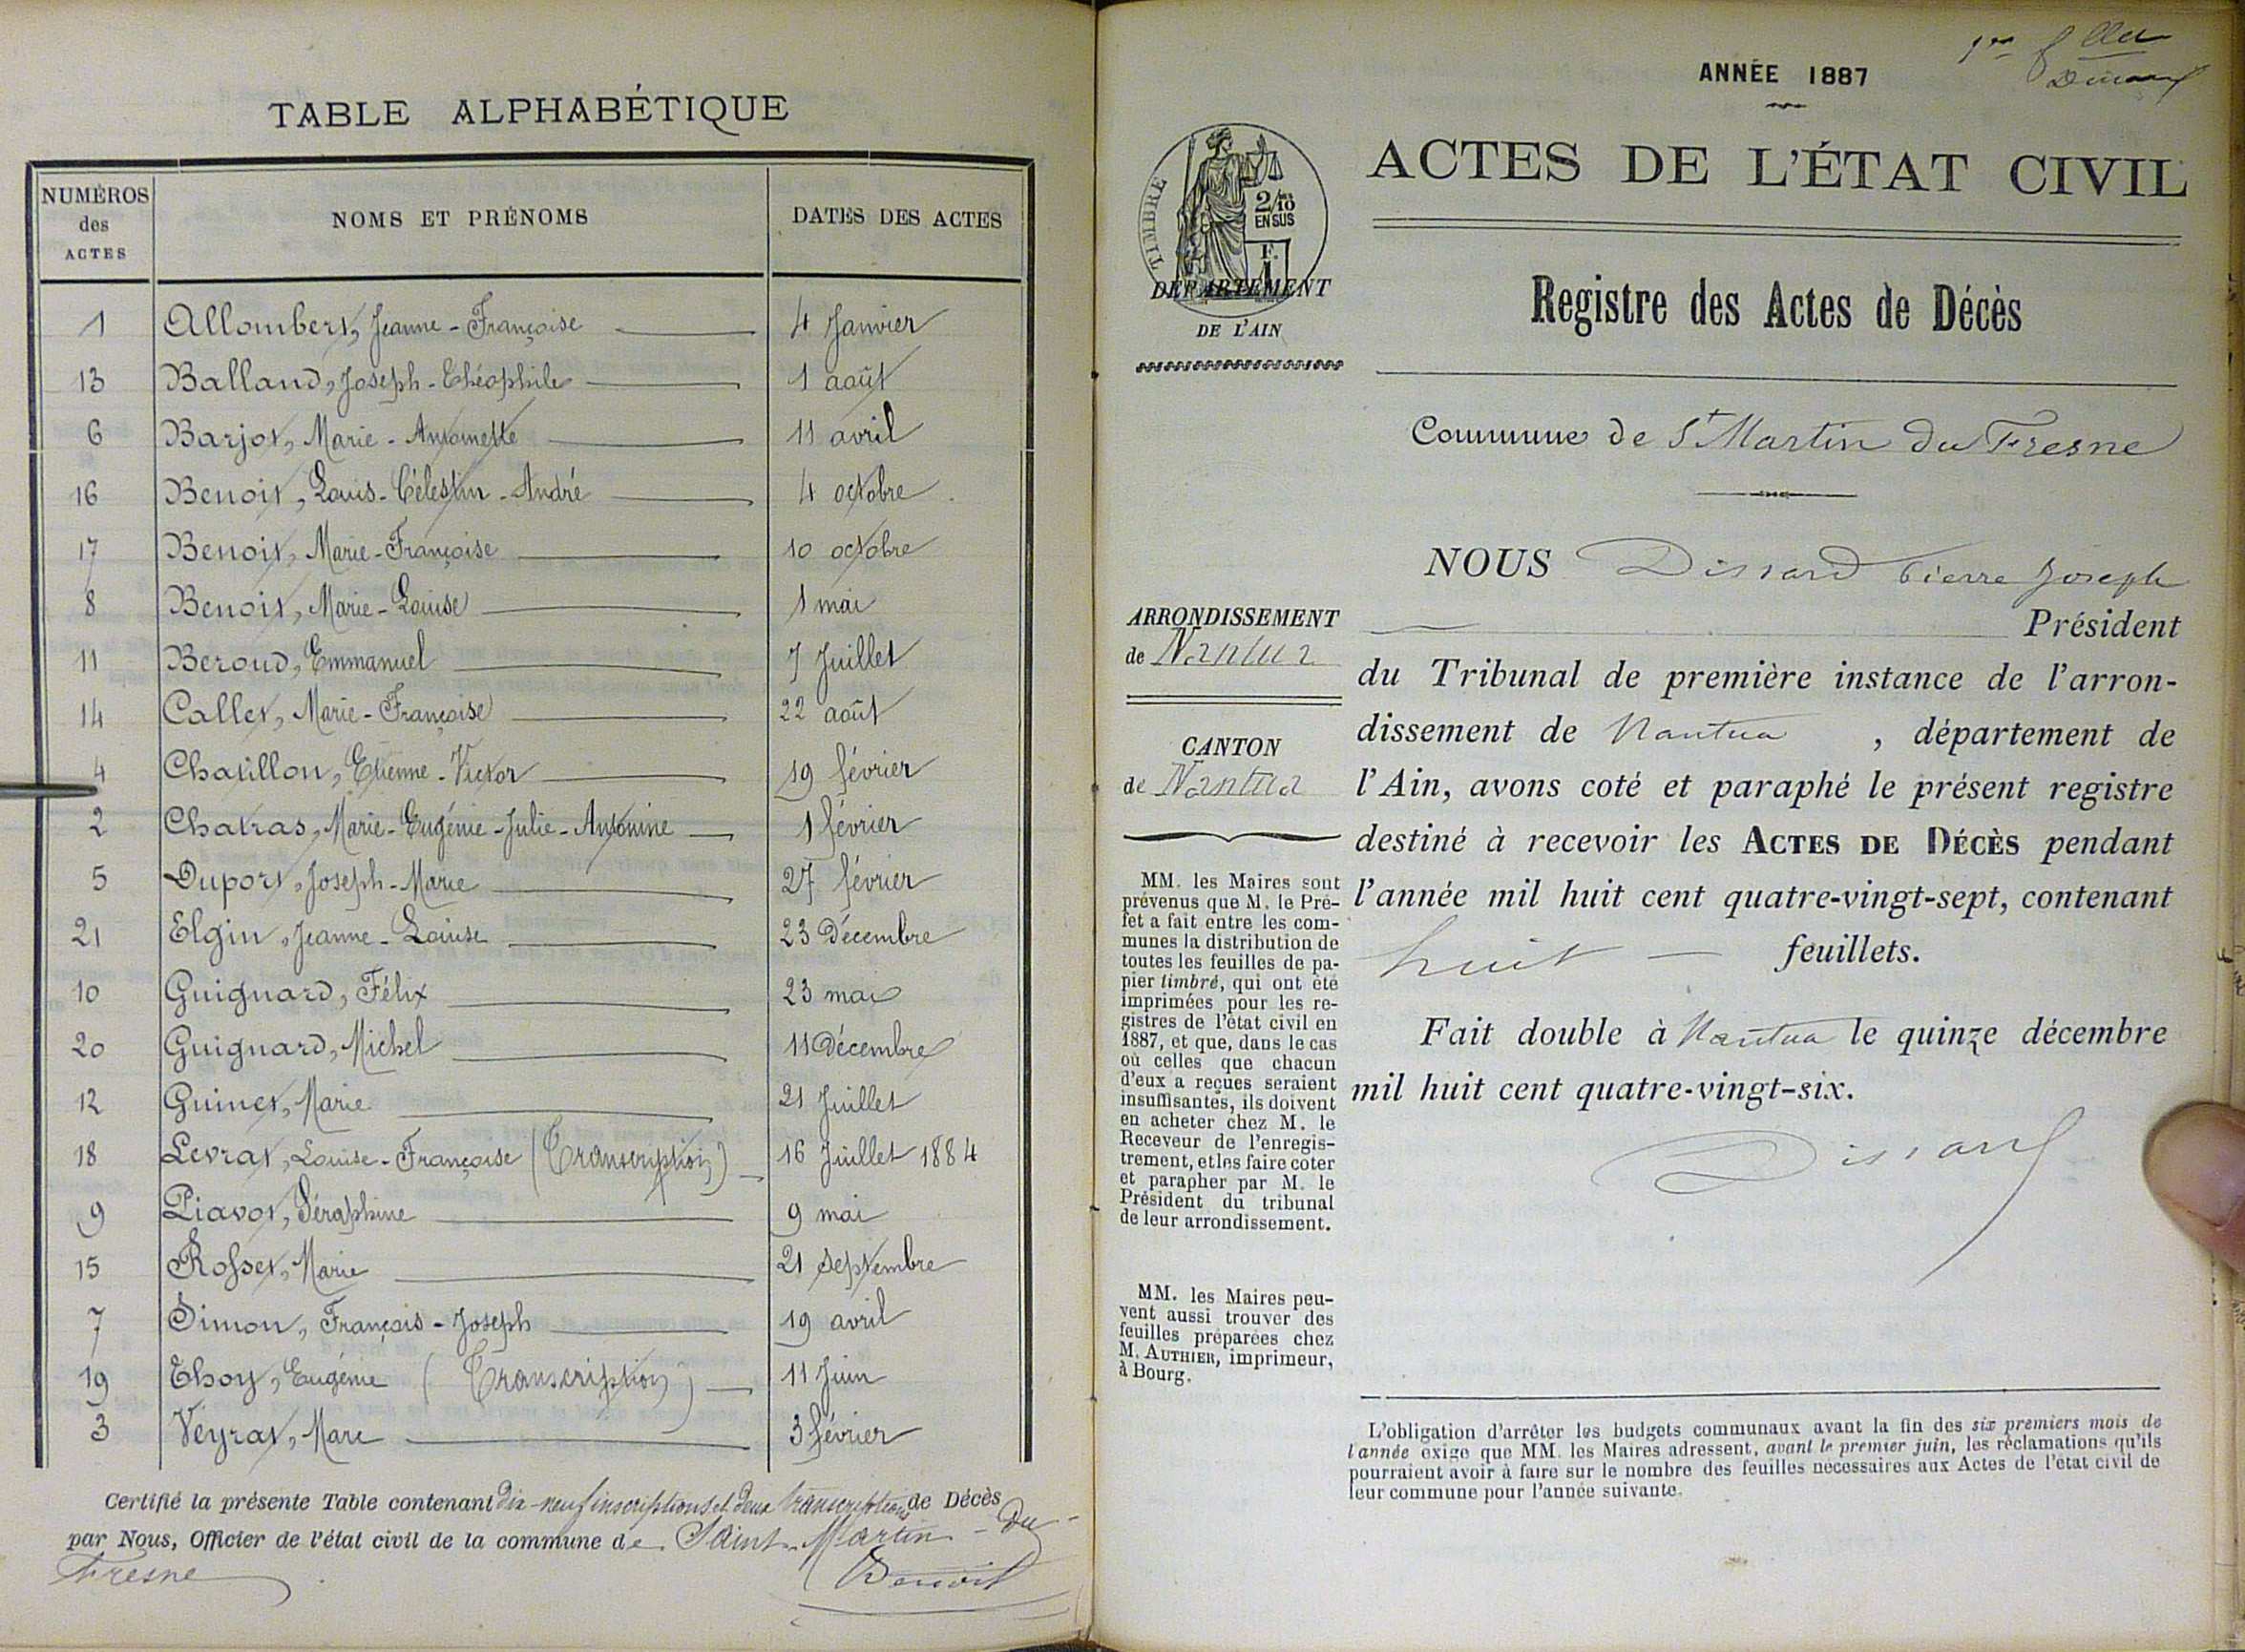 TABLE ALPHABÉTIQUE
NUMÉROS des ACTES NOMS ET PRÉNOMS DATES DES ACTES
1 Allombert, Jeanne-Françoise 4 Janvier
13 Balland, Joseph-Théophile 1 août
6 Barjot, Marie-Antoinette 11 avril
16 Benoit, Louis-Célestin-André 4 octobre
17 Benoit, Marie-Françoise 10 octobre
8 Benoit, Marie-Louise 1 mai
11 Beroud, Emmanuel 7 Juillet
14 Callet, Marie-Françoise 22 août
4 Chatillon, Etienne-Victor 19 février
2 Chatras, Marie-Eugénie-Julie-Antonine 1 février
5 Duport, Joseph-Marie 27 février
21 Elgin, Jeanne-Louise 23 Décembre
10 Guignard, Félix 23 mai
20 Guignard, Michel 11 Décembre
12 Guinet, Marie 21 Juillet
18 Levrat, Louise-Françoise (Transcription) 16 Juillet 1884
9 Piavot, Séraphine 9 mai
15 Rosset, Marie 21 septembre
7 Simon, François-Joseph 19 avril
19 Thoy, Eugénie (Transcription) 11 Juin
3 Veyrat, Marie 3 février
Certifié la présente Table contenant dix-neuf inscriptions et deux transcriptions de Décès
par Nous, Officier de l'état civil de la commune de Saint-Martin-du-
Fresne
Benoit
ANNÉE 1887
TIMBRE
2/10
EN SUS
F.
1
ACTES DE L'ÉTAT CIVIL
DÉPARTEMENT
DE L'AIN
Registre des Actes de Décès
Commune de St Martin du Fresne
ARRONDISSEMENT
de Nantua
CANTON
de Nantua
MM. les Maires sont
prévenus que M. le Pré-
fet a fait entre les com-
munes la distribution de
toutes les feuilles de pa-
pier timbré, qui ont été
imprimées pour les re-
gistres de l'état civil en
1887, et que, dans le cas
où celles que chacun
d'eux a reçues seraient
insuffisantes, ils doivent
en acheter chez M. le
Receveur de l'enregis-
trement, et les faire coter
et parapher par M. le
Président du tribunal
de leur arrondissement.
MM. les Maires peu-
vent aussi trouver des
feuilles préparées chez
M. AUTHIER, imprimeur,
à Bourg.
NOUS Dissard Pierre Joseph
Président
du Tribunal de première instance de l'arron-
dissement de Nantua, département de
l'Ain, avons coté et paraphé le présent registre
destiné à recevoir les ACTES DE DÉCÈS pendant
l'année mil huit cent quatre-vingt-sept, contenant
huit feuillets.
Fait double à Nantua le quinze décembre
mil huit cent quatre-vingt-six.
Dissard
L'obligation d'arrêter les budgets communaux avant la fin des six premiers mois de
l'année exige que MM. les Maires adressent, avant le premier juin, les réclamations qu'ils
pourraient avoir à faire sur le nombre des feuilles nécessaires aux Actes de l'état civil de
leur commune pour l'année suivante.